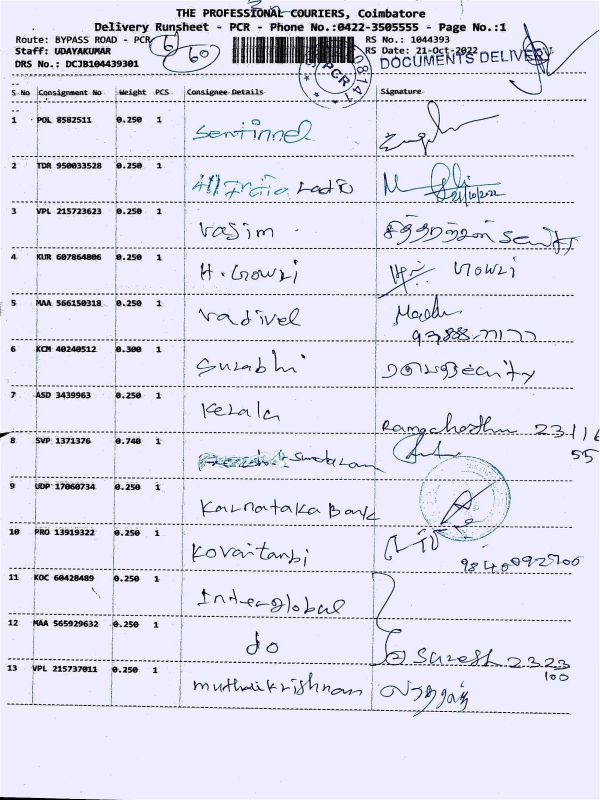 THE PROFESSIONAL COURIERS, Coimbatore
Delivery Runsheet - PCR - Phone No.:0422-3505555 - Page No.:1
Route: BYPASS ROAD - PCR 6 60 RS No.: 1044393
Staff: UDAYAKUMAR RS Date: 21-Oct-2022
DOCUMENTS DELIVERY
DRS No.: DCJB104439301
PCR 08141
S No Consignment No Weight PCS Consignee Details Signature
1 POL 8582511 0.250 1 Sentinnel
2 TDR 950033528 0.250 1 All India Ladio 21/10/2022
3 VPL 215723623 0.250 1 Vasim
4 KUR 607864806 0.250 1 H. Gowri Gowri
5 MAA 566150318 0.250 1 Vadivel Madhu
6 KCM 40240512 0.300 1 Surabhi
7 ASD 3439963 0.250 1 Kerala
8 SVP 1371376 0.740 1
9 UDP 17060734 0.250 1 Karnataka Bank
10 PRO 13919322 0.250 1 Kovaitanbi
11 KOC 60428489 0.250 1 Interglobal
12 MAA 565929632 0.250 1 do Suresh 2323
100
13 VPL 215737011 0.250 1 muthukrishnan